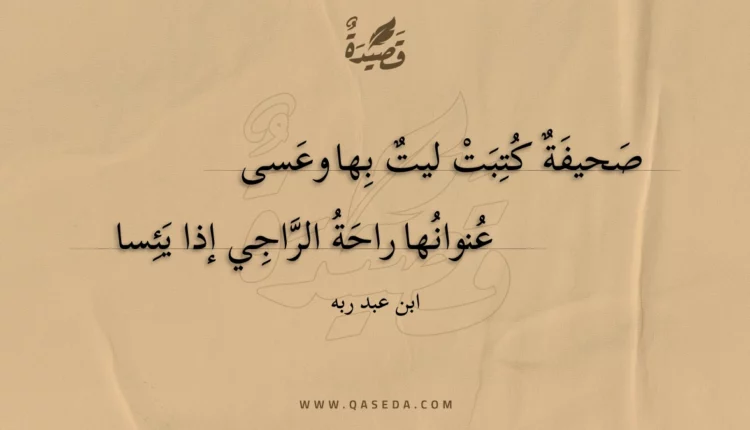 قَصِيْدَةٌ
صَحيفَةٌ كُتِبَتْ ليتٌ بِها وعَسى
عُنوانُها راحَةُ الرَّاجِي إذا يَئِسا
ابن عبد ربه
WWW.QASEDA.COM